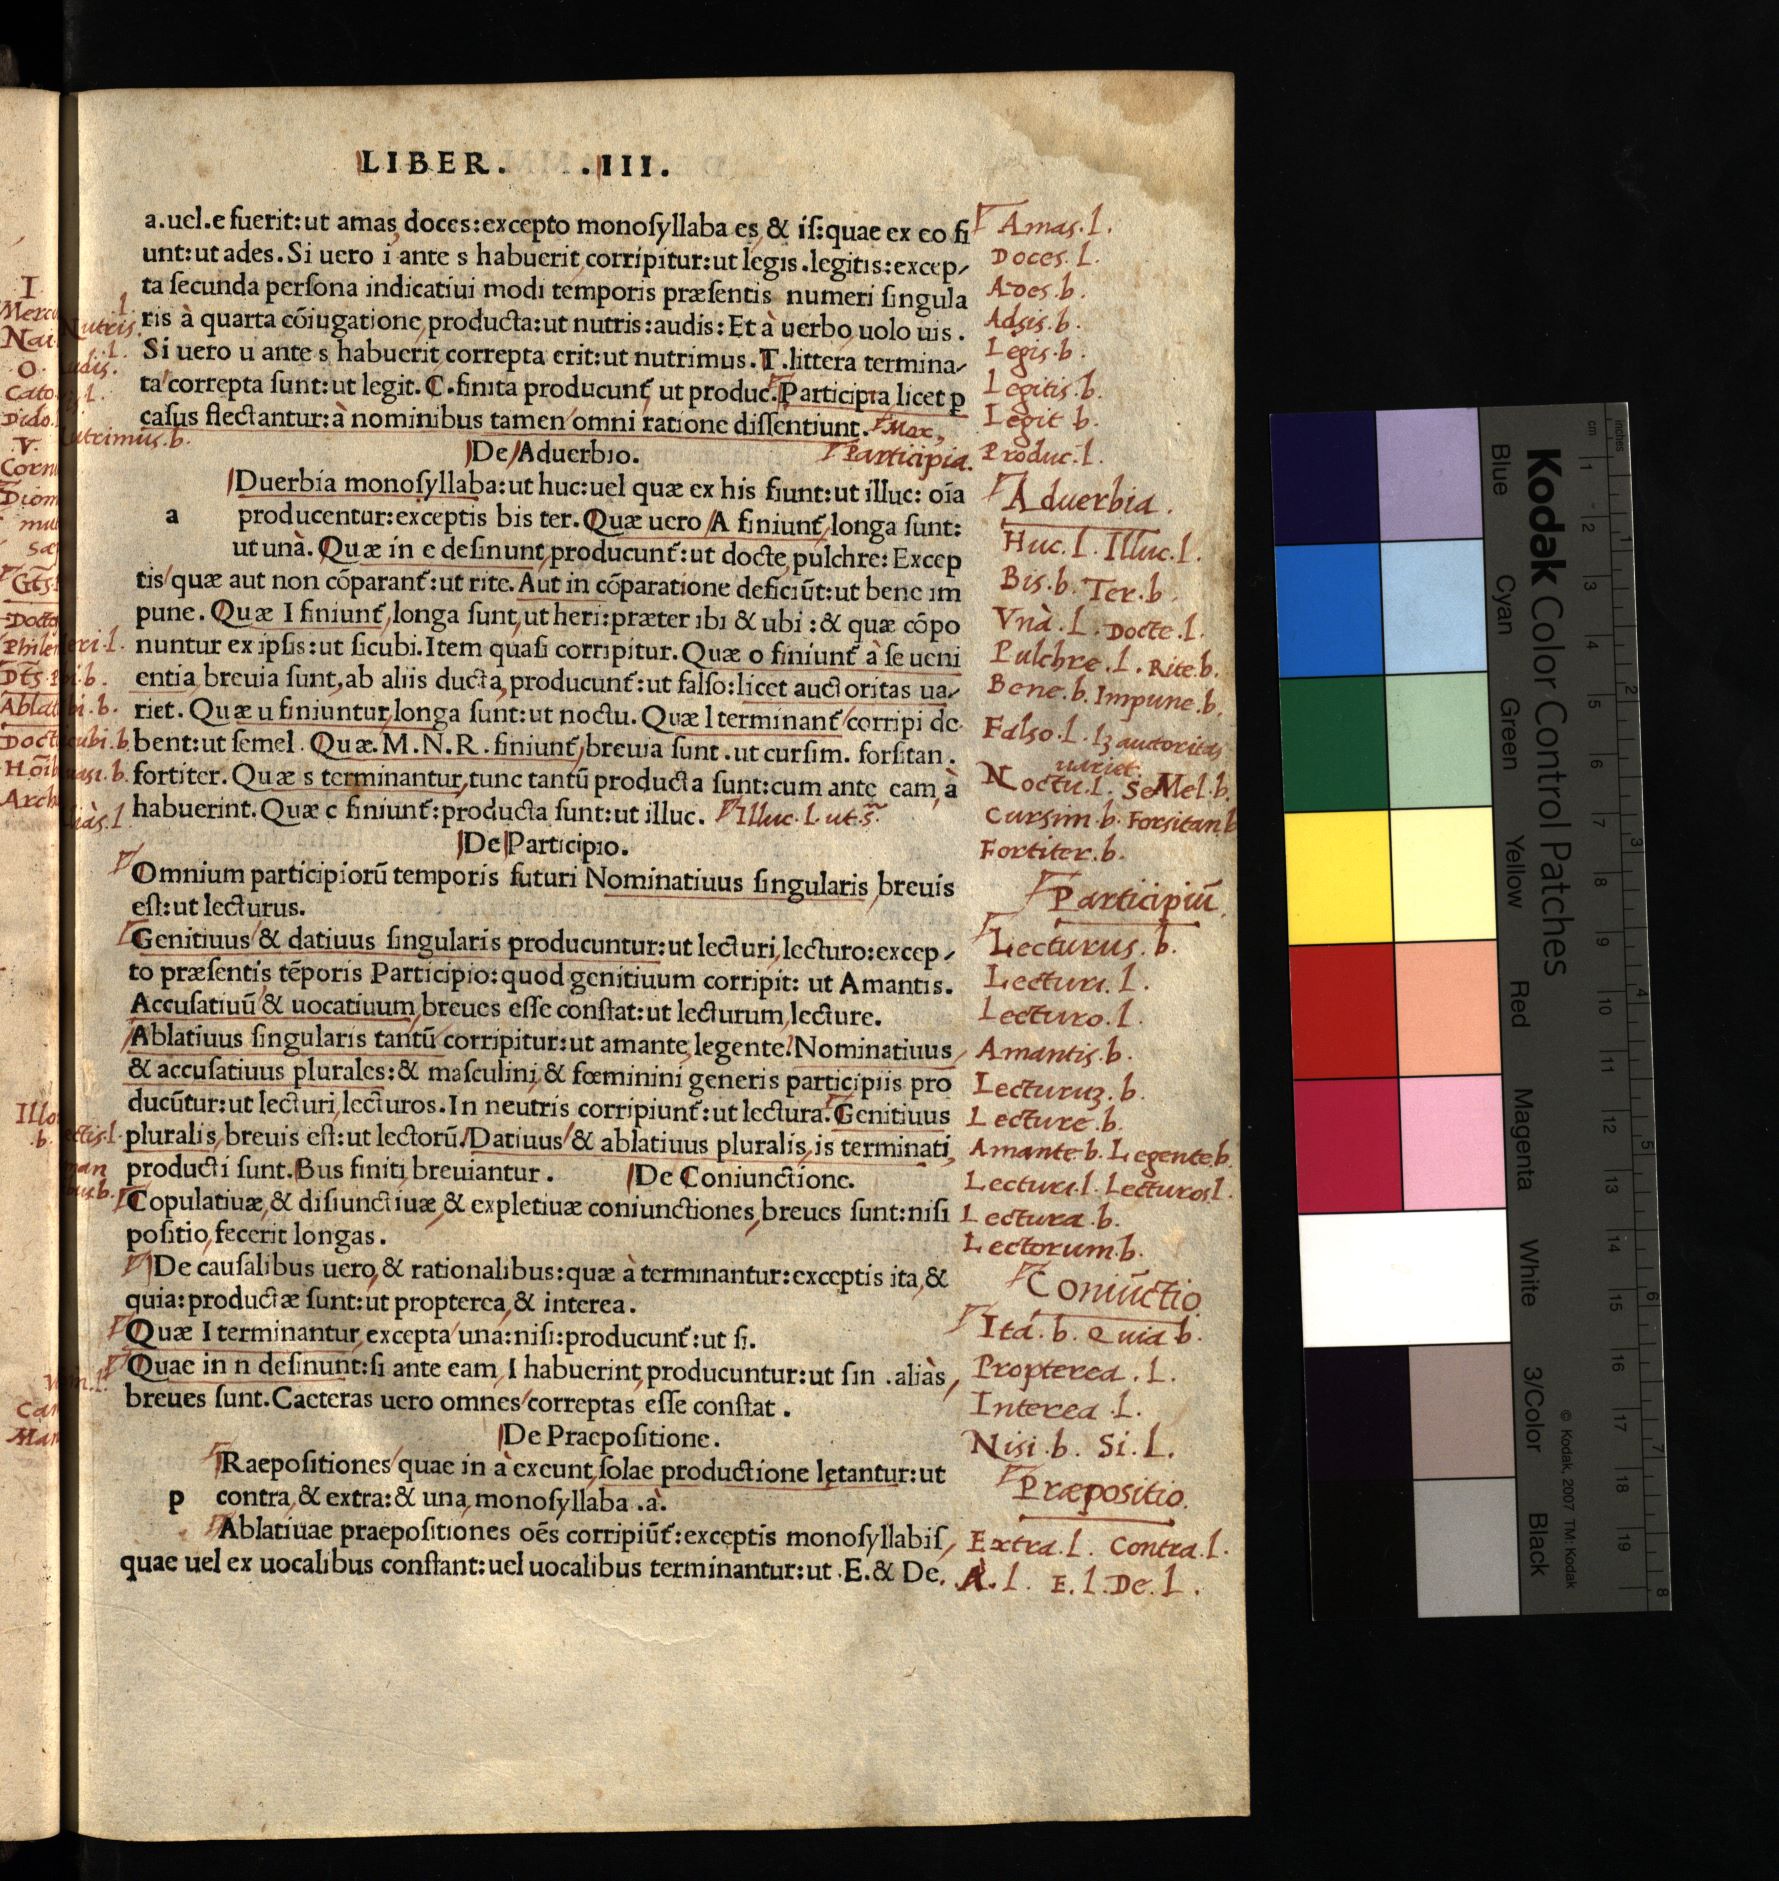 LIBER. .III.
a.uel.e fuerit:ut amas, doces:excepto monoſyllaba es, & iſ:quae ex eo fi
unt:ut ades. Si uero i ante s habuerit, corripitur:ut legis.legitis:excep-
ta ſecunda perſona indicatiui modi temporis præſentis numeri ſingula
ris à quarta cōiugatione, producta:ut nutris:audis: Et à uerbo, uolo uis.
Si uero u ante s habuerit correpta erit:ut nutrimus. T.littera termina-
ta correpta ſunt:ut legit. C.finita producunt̃, ut produc. Participia licet ꝑ
caſus flectantur:à nominibus tamen omni ratione diſſentiunt.
De Aduerbio.
Duerbia monoſyllaba:ut huc:uel quæ ex his fiunt:ut illuc: oīa
a producentur:exceptis bis ter. Quæ uero A finiunt̃, longa ſunt:
ut unà. Quæ in e deſinunt, producunt̃:ut docte, pulchre: Excep
tis quæ aut non cōparant̃:ut rite. Aut in cōparatione deficiūt:ut bene im
pune. Quæ I finiunt̃, longa ſunt, ut heri:præter ibi & ubi :& quæ cōpo
nuntur ex ipſis:ut ſicubi. Item quaſi corripitur. Quæ o finiunt̃ à ſe ueni
entia, breuia ſunt, ab aliis ducta, producunt̃:ut falſo:licet auctoritas ua-
riet. Quæ u finiuntur, longa ſunt:ut noctu. Quæ l terminant̃ corripi de
bent:ut ſemel. Quæ.M.N.R.finiunt̃, breuia ſunt.ut curſim. forſitan.
fortiter. Quæ s terminantur, tunc tantū producta ſunt:cum ante eam, à
habuerint. Quæ c finiunt̃:producta ſunt:ut illuc. Illuc.l. ut s̃.
De Participio.
Omnium participiorū temporis futuri Nominatiuus ſingularis, breuis
eſt:ut lecturus.
Genitiuus & datiuus ſingularis producuntur:ut lecturi, lecturo:excep-
to præſentis tēporis Participio:quod genitiuum corripit: ut Amantis.
Accuſatiuū & uocatiuum, breues eſſe conſtat:ut lecturum, lecture.
Ablatiuus ſingularis tantū corripitur:ut amante, legente. Nominatiuus
& accuſatiuus plurales:& maſculini, & fœminini generis participiis pro
ducūtur:ut lecturi, lecturos. In neutris corripiunt̃:ut lectura. Genitiuus
pluralis, breuis eſt:ut lectorū. Datiuus & ablatiuus pluralis, is terminati,
producti ſunt. Bus finiti, breuiantur. De Coniunctione.
Copulatiuæ, & diſiunctiuæ, & expletiuæ coniunctiones, breues ſunt:niſi
poſitio, fecerit longas.
De cauſalibus uero, & rationalibus:quæ à terminantur:exceptis ita, &
quia:productæ ſunt:ut propterea, & interea.
Quæ I terminantur, excepta una:niſi:producunt̃:ut ſi.
Quae in n deſinunt:ſi ante eam, I habuerint, producuntur:ut ſin .aliàs,
breues ſunt. Caeteras uero omnes correptas eſſe conſtat .
De Praepoſitione.
Raepoſitiones quae in à exeunt, ſolae productione lętantur:ut
p contra, & extra:& una, monoſyllaba .à.
Ablatiuae praepoſitiones oēs corripiūt̃:exceptis monoſyllabiſ,
quae uel ex uocalibus conſtant:uel uocalibus terminantur:ut .E.& De.
Amas.l.
Doces.l.
Ades.b.
Adsis.b.
Legis.b.
Legitis.b.
Legit b.
Participia. Produc.l.
Aduerbia.
Huc.l. Illuc.l.
Bis.b. Ter.b.
Vnà.l. Docte.l.
Pulchre.l. Rite.b.
Bene.b. Impune.b.
Falso.l. lꝫ autoritas
uariet.
Noctu.l. SeMel.b.
Cursim.b. Forsitan b
Fortiter.b.
Participiū.
Lecturus.b.
Lecturi.l.
Lecturo.l.
Amantis.b.
Lecturuꝫ.b.
Lecture.b.
Amante b. Legente b.
Lecturi.l. Lecturos l.
Lectura.b.
Lectorum.b.
Coniūctio
Ita.b. Quia b.
Propterea.l.
Interea.l.
Nisi.b. Si.l.
Præpositio.
Extra.l. Contra.l.
À.l. E.l. De.l.
Kodak Color Control Patches
Blue Cyan Green Yellow Red Magenta White 3/Color Black
© Kodak, 2007 TM: Kodak
cm 1 2 3 4 5 6 7 8 9 10 11 12 13 14 15 16 17 18 19
inches 1 2 3 4 5 6 7 8